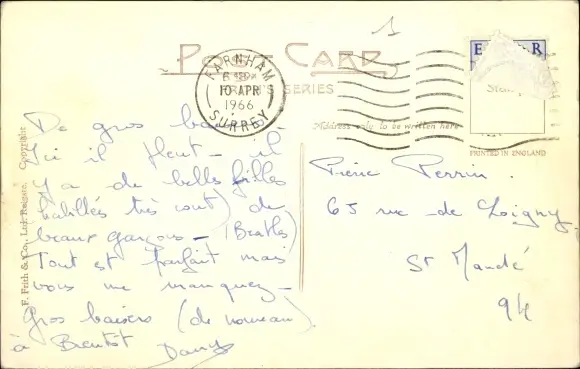 1
POST CARD
FARNHAM
10 APR
1966
SURREY
FRITH'S SERIES
E R
Address only to be written here
PRINTED IN ENGLAND
F. Frith & Co., Ltd. Reigate. Copyright
De gros baisers.
Ici il pleut - il
y a de belles filles
habillés très court) de
beaux garçons - (Beatles)
Tout est parfait mais
vous me manquez -
Gros baisers (de nouveau)
à Bientôt Dany
Pierre Perrin.
65 rue de Loigny
St Mandé
94